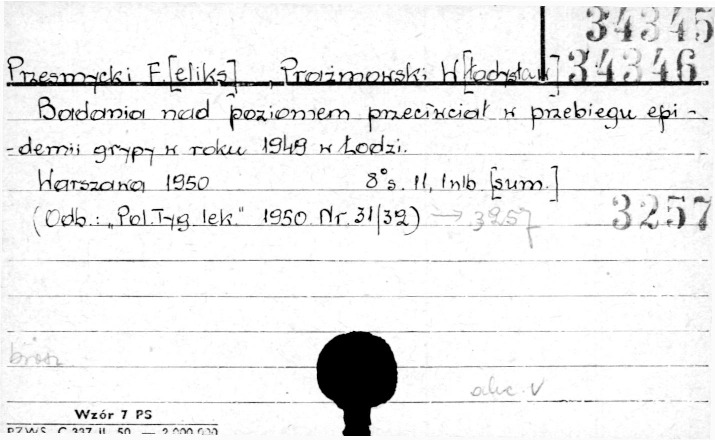 34345
Przesmycki F.[eliks], Prażmowski W[ładysław] 34346
Badania nad poziomem przeciwciał w przebiegu epi-
-demii grypy w roku 1949 w Łodzi.
Warszawa 1950 8° s. 11, 1 nlb. [sum.]
(Odb.: „Pol. Tyg. lek." 1950 Nr. 31/32) → 3257 3257
brosz
akc. V
Wzór 7 PS
PZWS. C 337 II. 50. — 2 000 000